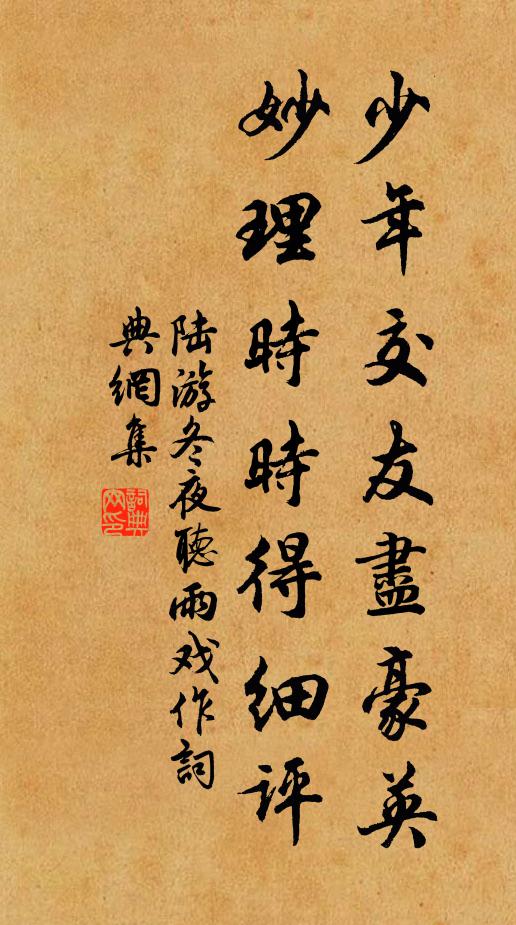 少年交友盡豪英
妙理時時得細評
陆游冬夜聽雨戏作詞
典網集
詞典
网印